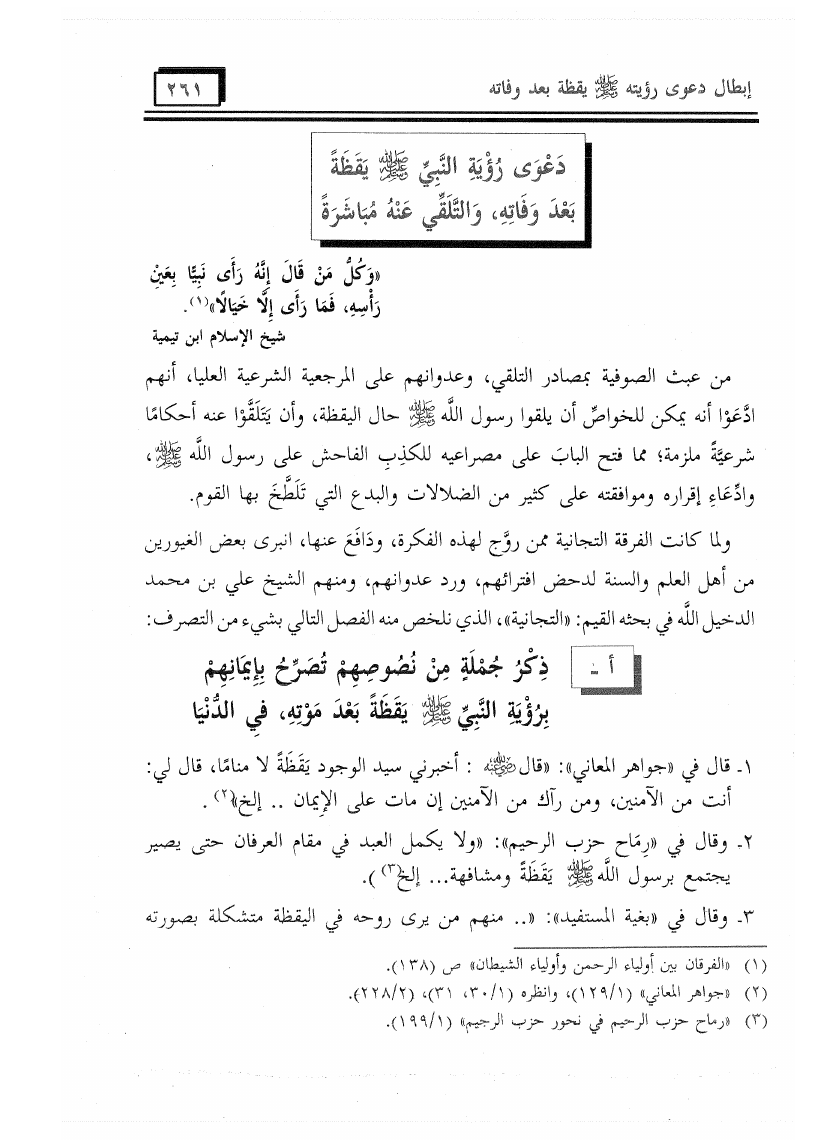 إبطال دعوى رؤيته ﷺ يقظة بعد وفاته
٢٦١
دَعْوَى رُؤْيَةِ النَّبِيِّ ﷺ يَقَظَةً
بَعْدَ وَفَاتِهِ، وَالتَّلَقِّي عَنْهُ مُبَاشَرَةً
«وَكُلُّ مَنْ قَالَ إِنَّهُ رَأَى نَبِيًّا بِعَيْنِ
رَأْسِهِ، فَمَا رَأَى إِلَّا خَيَالًا»(١).
شيخ الإسلام ابن تيمية
من عبث الصوفية بمصادر التلقي، وعدوانهم على المرجعية الشرعية العليا، أنهم
ادَّعَوْا أنه يمكن للخواصِّ أن يلقوا رسول اللَّه ﷺ حال اليقظة، وأن يَتَلَقَّوْا عنه أحكامًا
شرعيَّةً ملزمة؛ مما فتح البابَ على مصراعيه للكذبِ الفاحش على رسول اللَّه ﷺ،
وادِّعَاءِ إقراره وموافقته على كثير من الضلالات والبدع التي تَلَطَّخَ بها القوم.
ولما كانت الفرقة التجانية ممن روَّج لهذه الفكرة، ودَافَعَ عنها، انبرى بعض الغيورين
من أهل العلم والسنة لدحض افترائهم، ورد عدوانهم، ومنهم الشيخ علي بن محمد
الدخيل اللَّه في بحثه القيم: «التجانية»، الذي نلخص منه الفصل التالي بشيء من التصرف:
أ ـ ذِكْرُ جُمْلَةٍ مِنْ نُصُوصِهِمْ تُصَرِّحُ بِإِيمَانِهِمْ
بِرُؤْيَةِ النَّبِيِّ ﷺ يَقَظَةً بَعْدَ مَوْتِهِ، فِي الدُّنْيَا
١ـ قال في «جواهر المعاني»: «قال رضي الله عنه : أخبرني سيد الوجود يَقَظَةً لا منامًا، قال لي:
أنت من الآمنين، ومن رآك من الآمنين إن مات على الإيمان .. إلخ»(٢) .
٢ـ وقال في «رِمَاح حزب الرحيم»: «ولا يكمل العبد في مقام العرفان حتى يصير
يجتمع برسول اللَّه ﷺ يَقَظَةً ومشافهة... إلخ(٣)).
٣ـ وقال في «بغية المستفيد»: «.. منهم من يرى روحه في اليقظة متشكلة بصورته
(١) «الفرقان بين أولياء الرحمن وأولياء الشيطان» ص (١٣٨).
(٢) «جواهر المعاني» (١٢٩/١)، وانظره (٣٠/١، ٣١)، (٢٢٨/٢).
(٣) «رماح حزب الرحيم في نحور حزب الرجيم» (١٩٩/١).